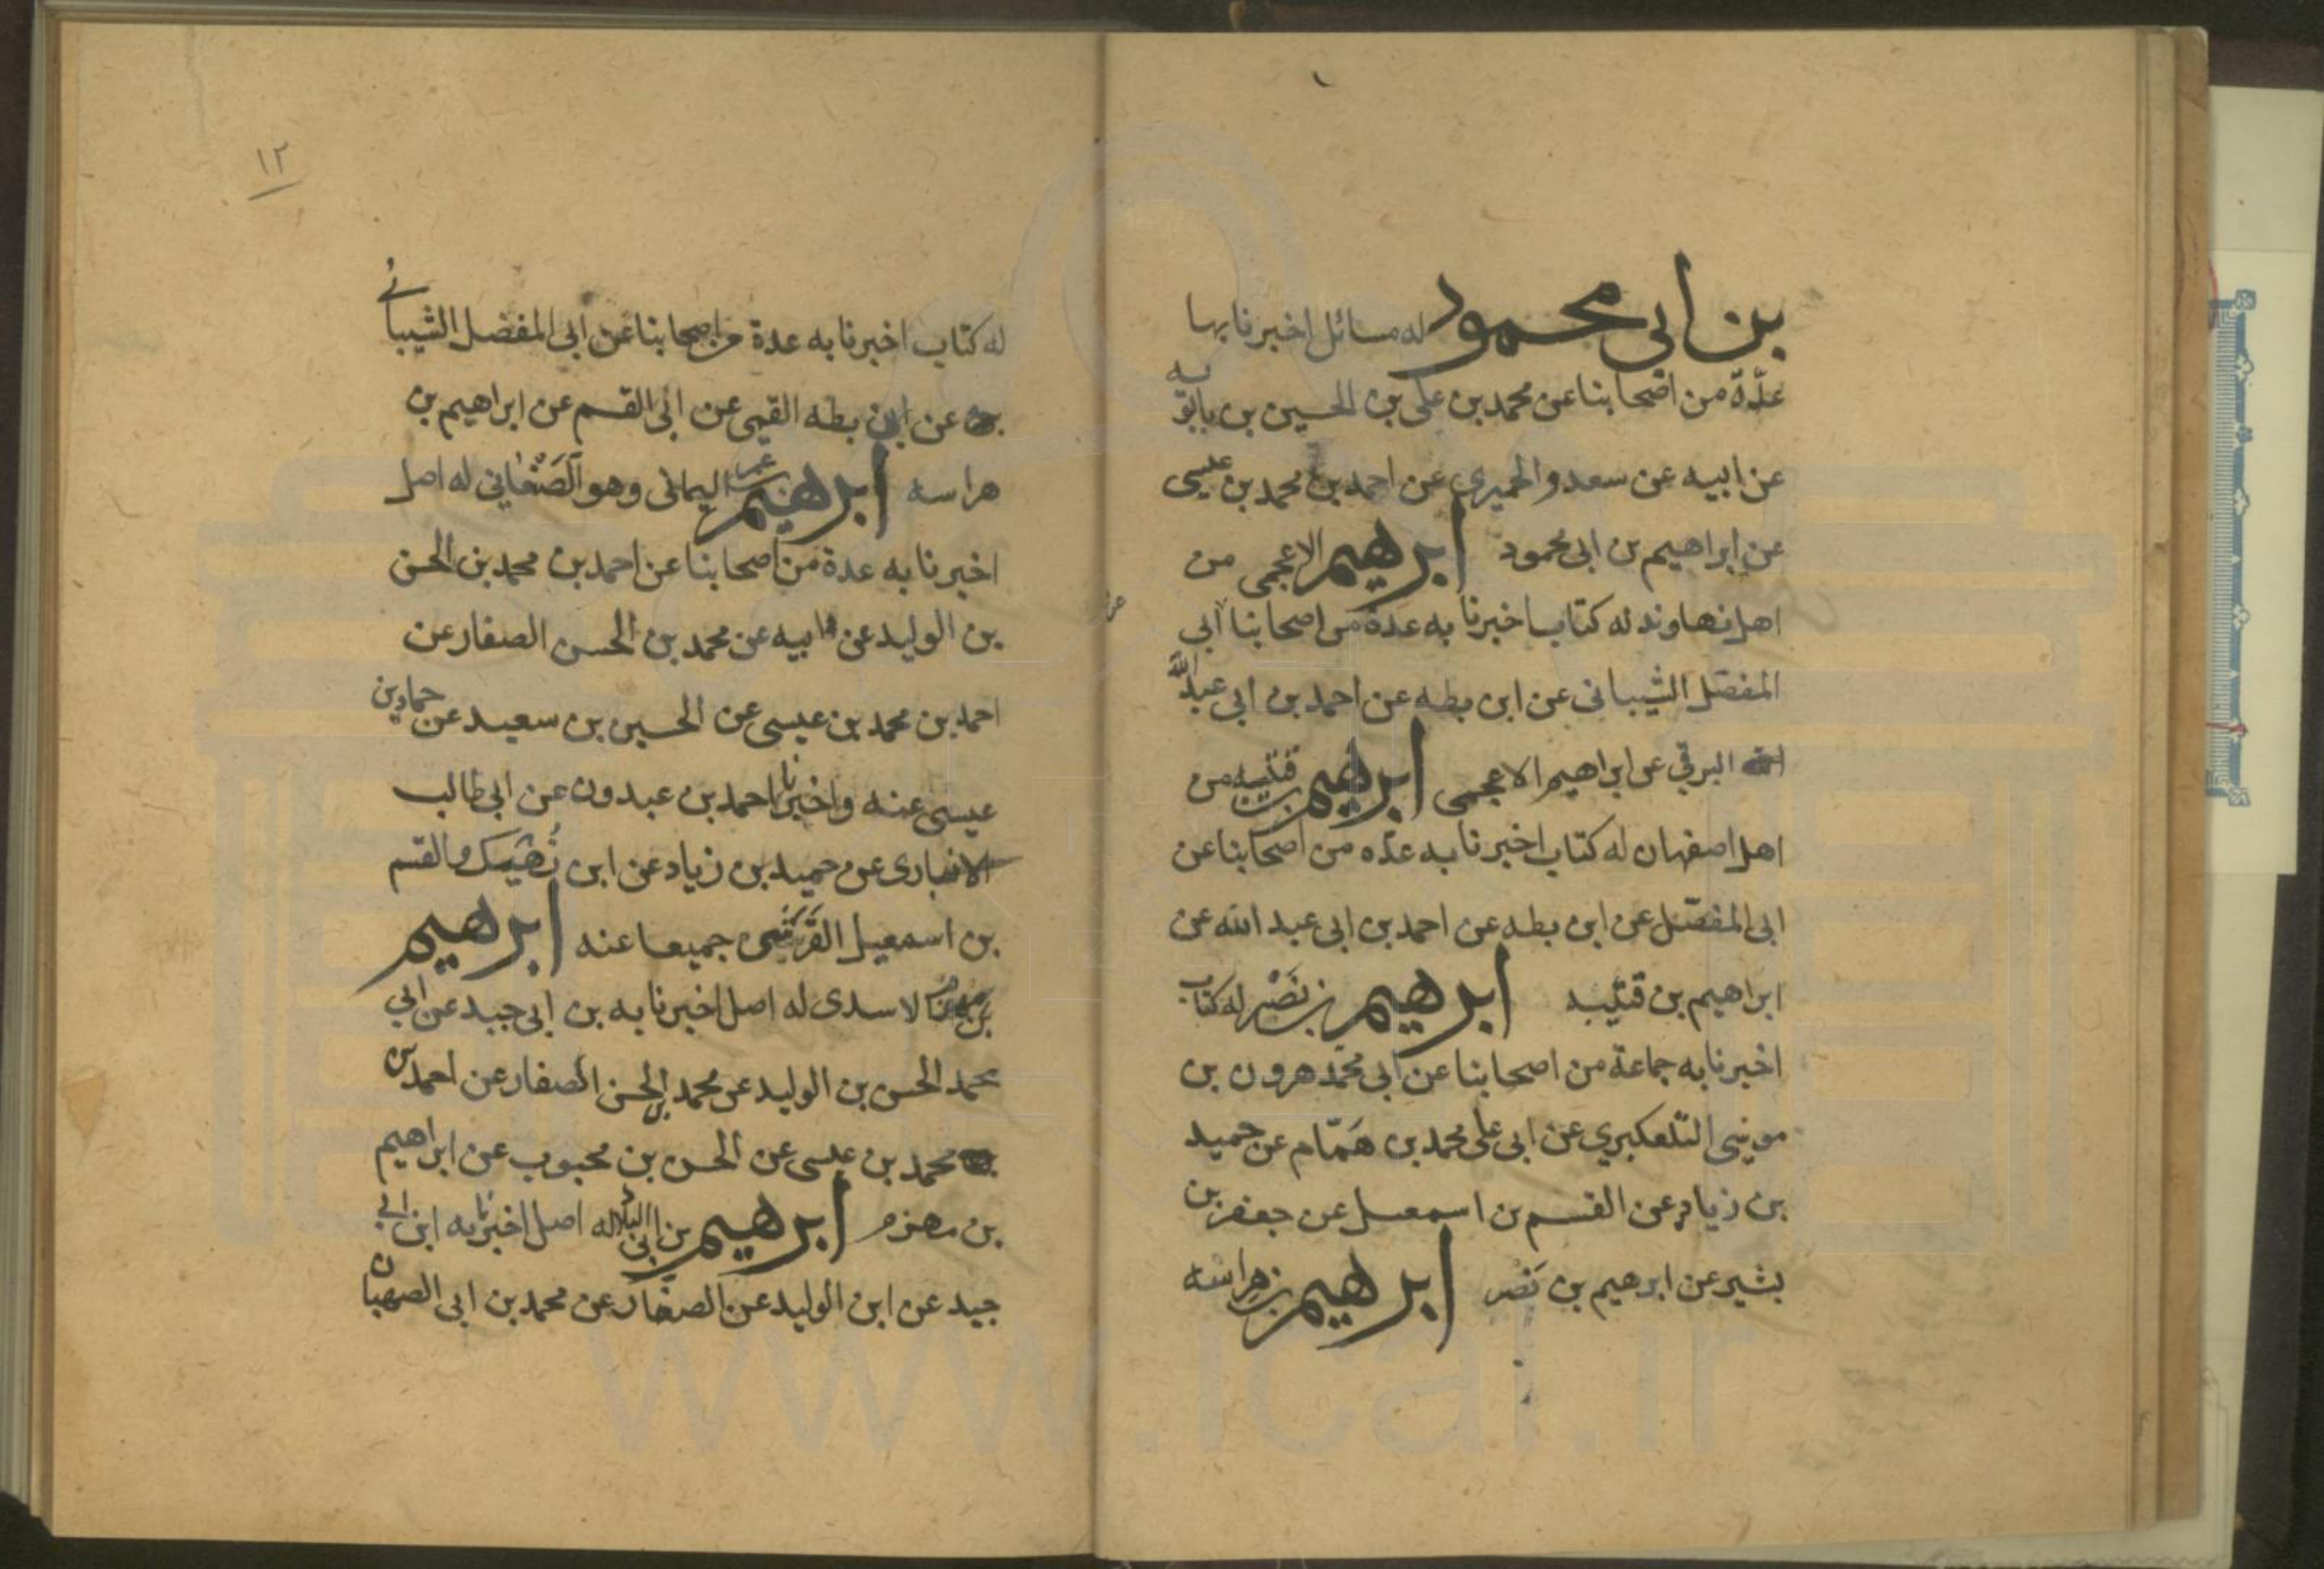 بن ابى محمود له مسائل اخبرنا بها
عدّة من اصحابنا عن محمد بن على بن الحسين بن بابويه
عن ابيه عن سعد والحميرى عن احمد بن محمد بن عيسى
عن ابراهيم بن ابى محمود ابرهيم الاعجمى من
اهل نهاوند له كتاب اخبرنا به عدة من اصحابنا ابى
المفضل الشيبانى عن ابن بطه عن احمد بن ابى عبد الله
البرقي عن ابراهيم الاعجمى ابرهيم بن قتيبه من
اهل اصفهان له كتاب اخبرنا به عدّه من اصحابنا عن
ابى المفضّل عن ابن بطه عن احمد بن ابى عبد الله عن
ابراهيم بن قتيبه ابرهيم بن نَصْر له كتاب
اخبرنا به جماعة من اصحابنا عن ابى محمّد هرون بن
موسى التلعكبري عن ابى على محمد بن هَمّام عن حميد
بن زياد عن القسم بن اسمعيل عن جعفر بن
بشير عن ابرهيم بن نَصْر ابرهيم بن هراسه
١٢
له كتاب اخبرنا به عدة من اصحابنا عن ابى المفضل الشيبانى
عن ابن بطه القيمى عن ابى القسم عن ابراهيم بن
هراسه ابرهيم بن عمر اليمانى وهو الصَنْعٰاني له اصل
اخبرنا به عدة من اصحابنا عن احمد بن محمد بن الحسن
بن الوليد عن ابيه عن محمد بن الحسن الصفار عن
احمد بن محمد بن عيسى عن الحسين بن سعيد عن حماد بن
عيسى عنه واخبرنا احمد بن عبدون عن ابى طالب
الانبارى عن حميد بن زياد عن ابن نُهَيك والقسم
بن اسمعيل القَرَشى جميعا عنه ابرهيم
الاسدى له اصل اخبرنا به بن ابى جيد عن ابي
محمد الحسن بن الوليد عن محمد بن الحسن الصفار عن احمد بن
محمد بن عيسى عن الحسن بن محبوب عن ابراهيم
بن مهزم ابرهيم بن ابى البلاد له اصل اخبرنا به ابن ابى
جيد عن ابن الوليد عن الصفار عن محمد بن ابى الصهبان
www.ical.ir